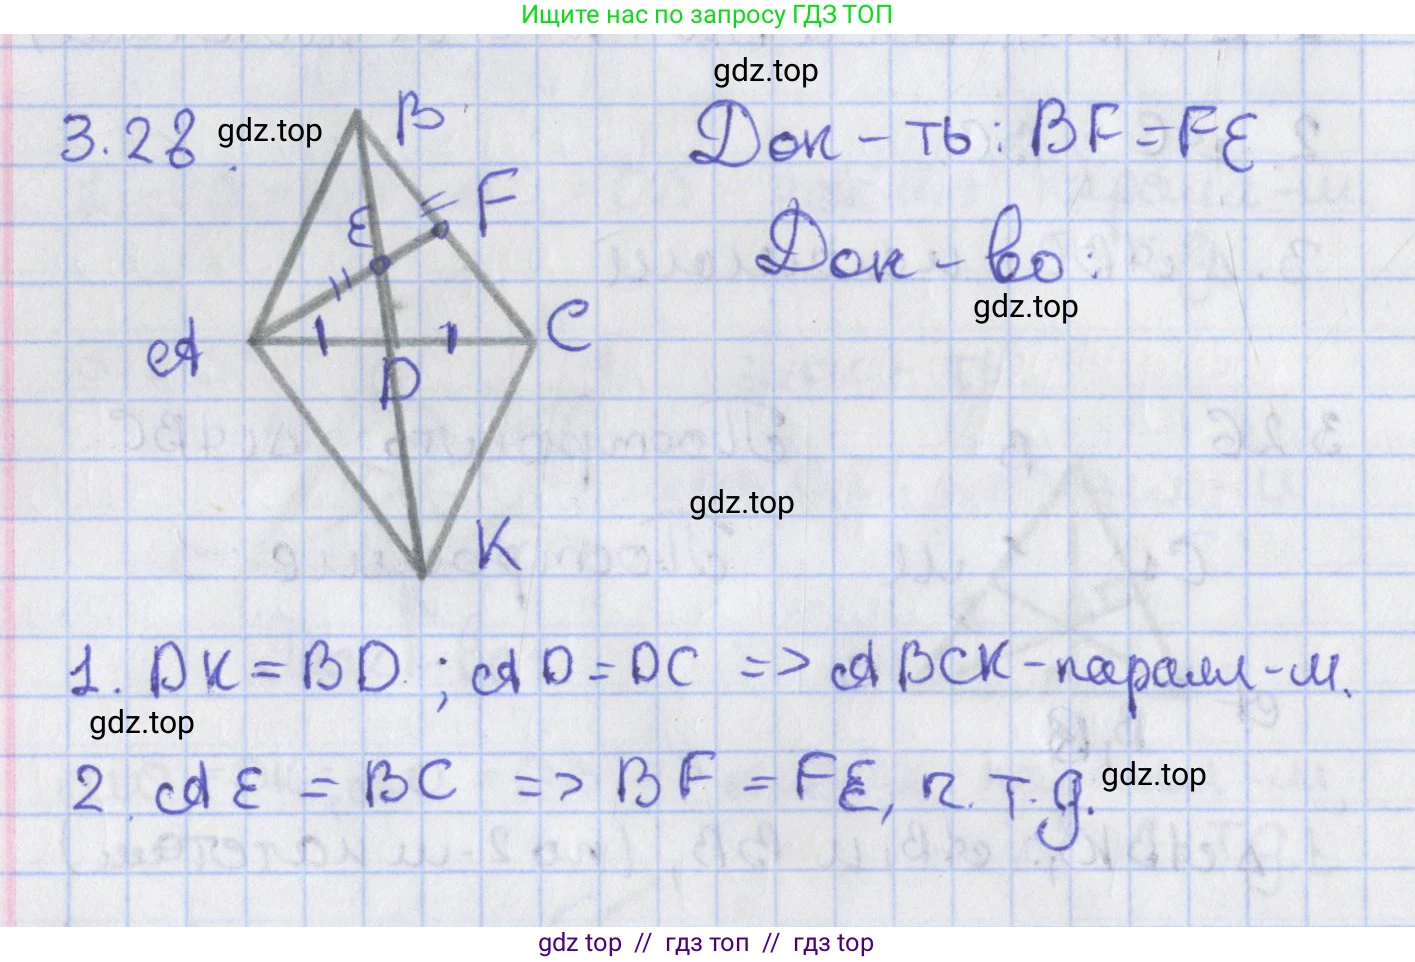 Ищите нас по запросу ГДЗ ТОП
gdz.top
3.28.
gdz.top
B
Док-ть: BF=FE
F
E
Док-во:
gdz.top
A
C
D
gdz.top
K
1. DK = BD ; AD = DC => ABCK - паралл-м.
gdz.top
2. AE = BC => BF = FE, ч. т. д.
gdz.top
gdz top // гдз топ // гдз top